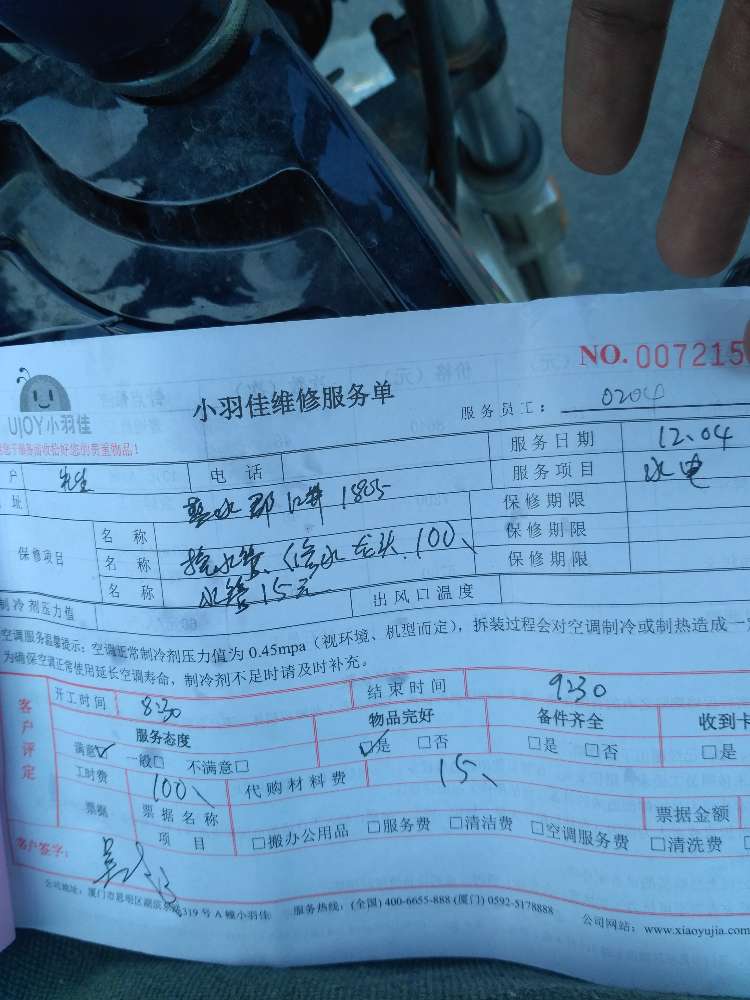 NO. 007215
UJOY小羽佳
小羽佳维修服务单
服务员工： 0204
收给好您的贵重物品！
户 先生 电话 服务日期 12.04
址 郡 1805 服务项目 水电
保修项目 名称 保修期限
名称 换水管、修水龙头 100、 保修期限
名称 水管15元 保修期限
制冷剂压力值 出风口温度
空调服务温馨提示：空调正常制冷剂压力值为 0.45mpa（视环境、机型而定），拆装过程会对空调制冷或制热造成一定
为确保空调正常使用延长空调寿命，制冷剂不足时请及时补充。
客户评定
开工时间 8:30 结束时间 9:30
服务态度 物品完好 备件齐全 收到卡
满意☑ 一般□ 不满意□ ☑是 □否 □是 □否 □是
工时费 100、 代购材料费 15、
票据 票据名称 票据金额
项目 □搬办公用品 □服务费 □清洁费 □空调服务费 □清洗费
客户签字：
公司地址：厦门市思明区湖滨东路319号A幢小羽佳 服务热线：(全国) 400-6655-888 (厦门) 0592-5178888 公司网站：www.xiaoyujia.com